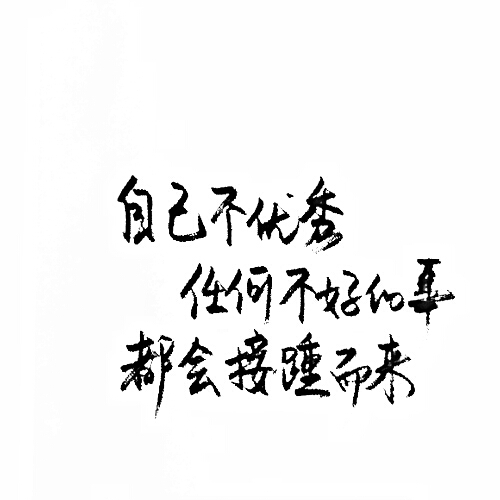 自己不优秀
任何不好的事
都会接踵而来